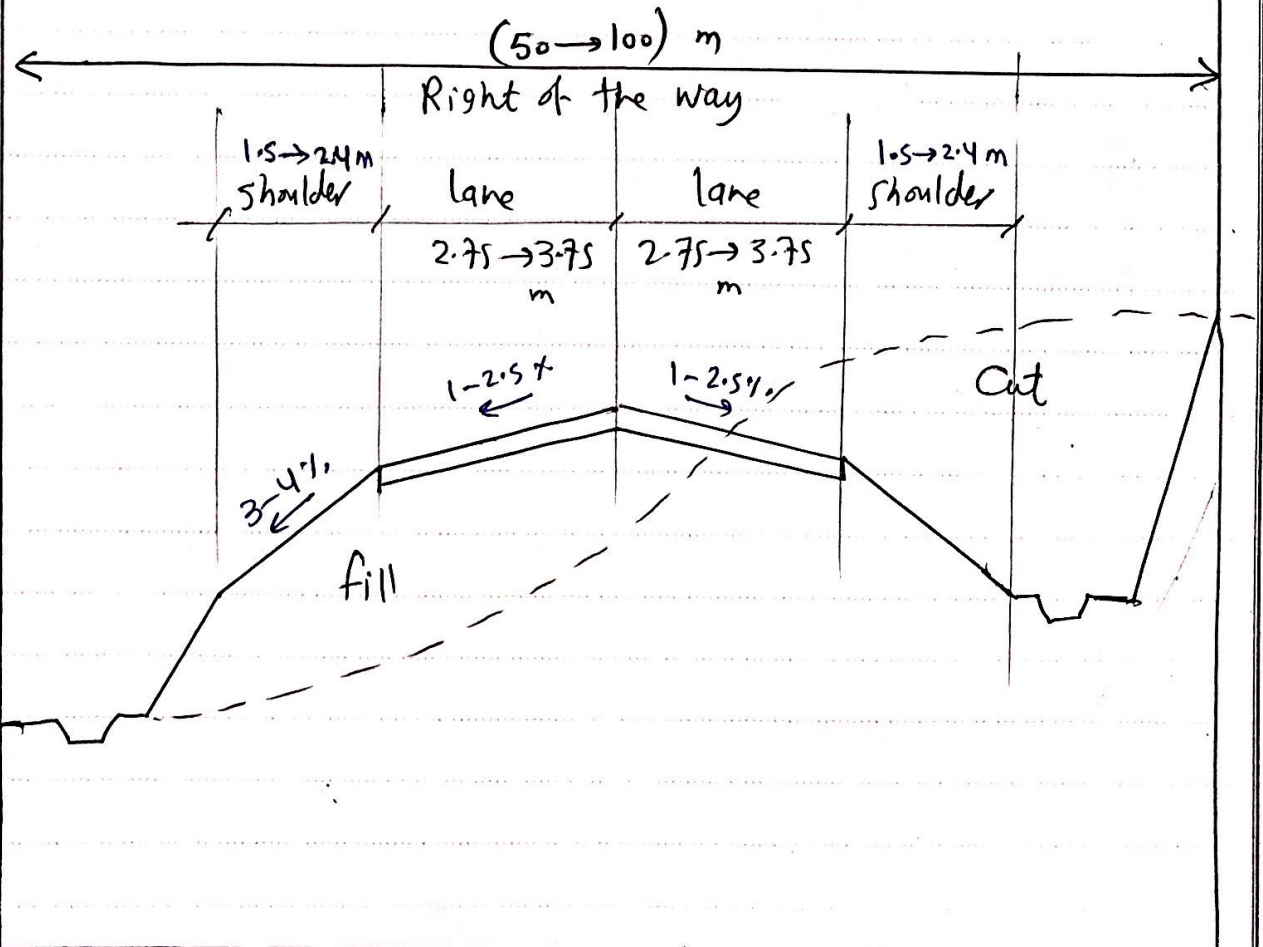 (50→100) m
Right of the way
1.5→2.4 m
shoulder
lane
lane
1.5→2.4 m
shoulder
2.75→3.75
m
2.75→3.75
m
1-2.5%
1-2.5%
3-4%
Cut
fill